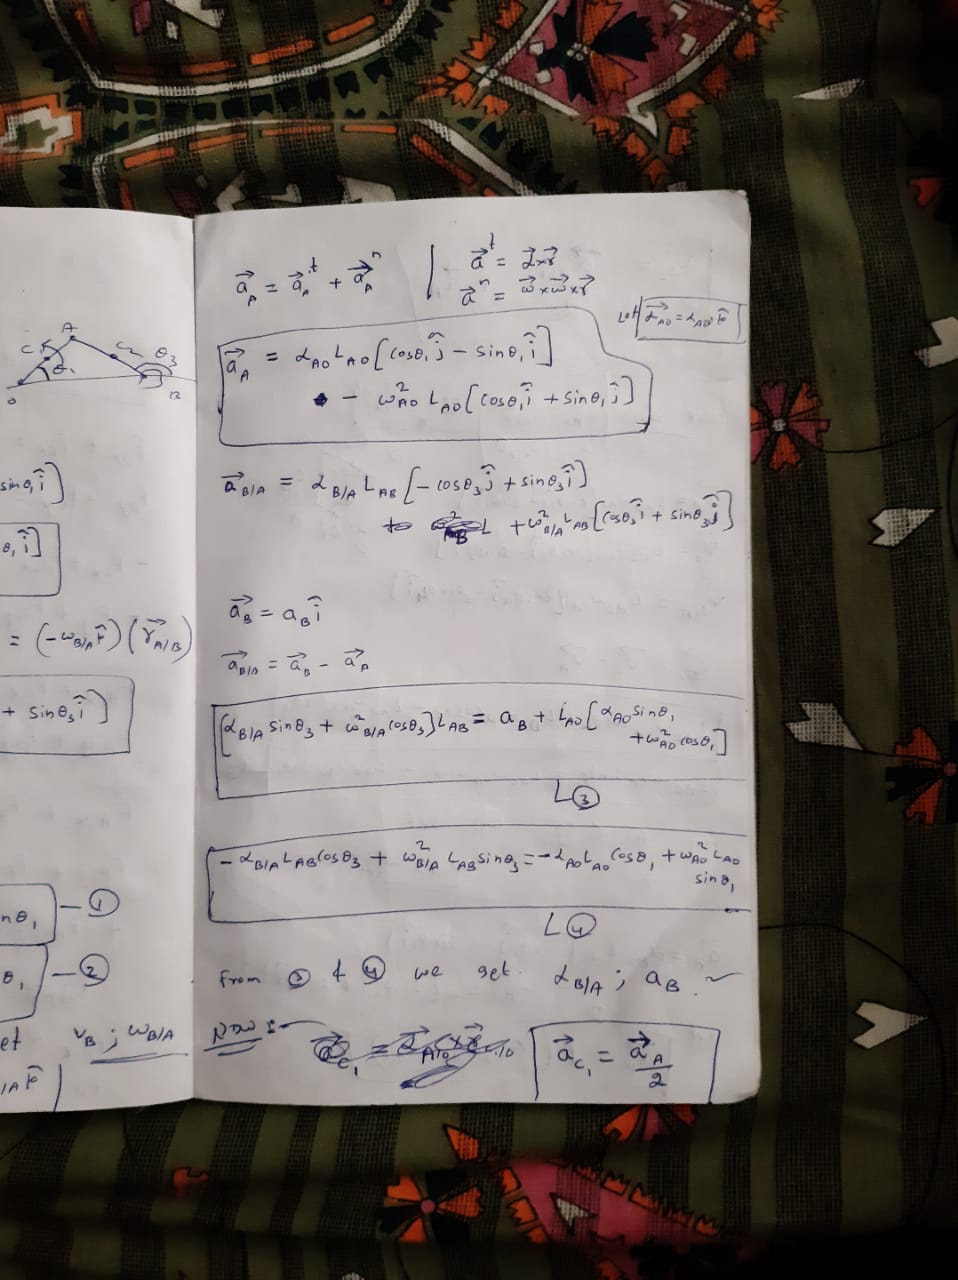 A
C₁
C₂
θ₁
θ₃
O
B
sinθ₁ î]
θ₁ î]
= (-ω_B/A k̂)(r⃗_A/B)
+ sinθ₃ î]
nθ₁ — ①
θ₁ — ②
et v_B ; ω_B/A
/A k̂
a⃗_A = a⃗_A^t + a⃗_A^n | a⃗^t = α⃗×r⃗
a⃗^n = ω⃗×ω⃗×r⃗
Let α⃗_AO = α_AO k̂
a⃗_A = α_AO L_AO [cosθ₁ ĵ - sinθ₁ î]
- ω²_AO L_AO [cosθ₁ î + sinθ₁ ĵ]
a⃗_B/A = α_B/A L_AB [-cosθ₃ ĵ + sinθ₃ î]
+ω²_B/A L_AB [cosθ₃ î + sinθ₃ ĵ]
a⃗_B = a_B î
a⃗_B/A = a⃗_B - a⃗_A
[α_B/A sinθ₃ + ω²_B/A cosθ₃] L_AB = a_B + L_AO [α_AO sinθ₁
+ω²_AO cosθ₁]
③
-α_B/A L_AB cosθ₃ + ω²_B/A L_AB sinθ₃ = -α_AO L_AO cosθ₁ + ω²_AO L_AO
sinθ₁
④
from ③ & ④ we get. α_B/A ; a_B
Now :-
a⃗_C₁ = a⃗_A/2